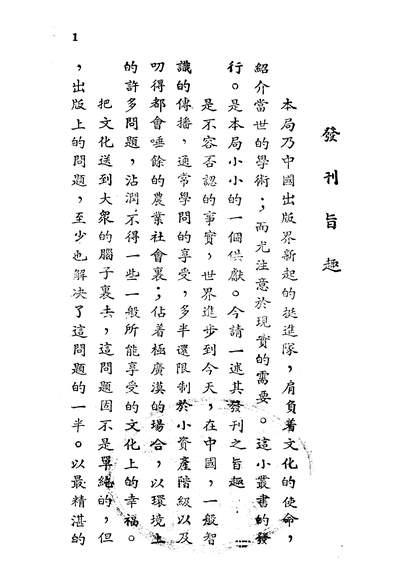 1
發刊旨趣
本局乃中國出版界新起的挺進隊，肩負着文化的使命，
紹介當世的學術；而尤注意於現實的需要。這小叢書的發
行。是本局小小的一個供獻。今請一述其發刊之旨趣
是不容否認的事實，世界進步到今天，在中國，一般智
識的傳播，通常學問的享受，多半還限制於小資產階級以及
叨得都會唾餘的農業社會裏；佔着極廣漠的場合，以環境上
的許多問題，沾潤不得一些一般所能享受的文化上的幸福。
把文化送到大衆的腦子裏去，這問題固不是單純的，但
，出版上的問題，至少也解决了這問題的一半。以最精湛的